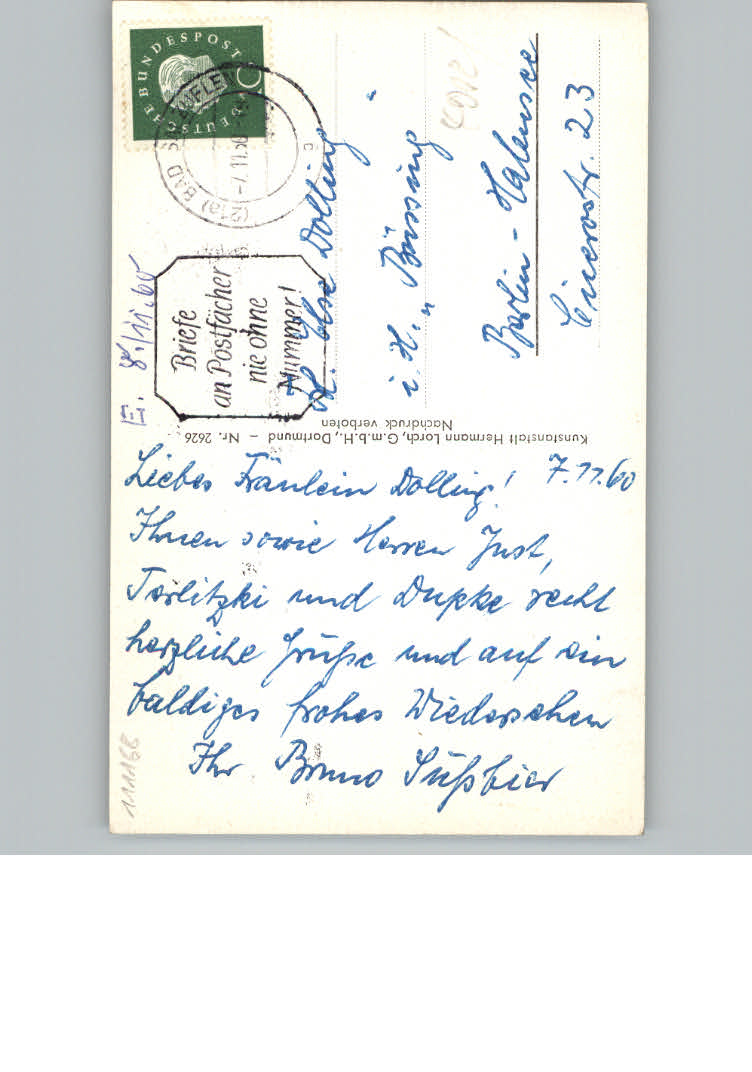 Liebes Fräulein Dolling! 7.11.60
Ihnen sowie Herren Just,
Torlitzki und Dupke recht
herzliche Grüße und auf ein
baldiges frohes Wiedersehen
Ihr Bruno Süßbier
Kunstanstalt Hermann Lorch, G.m.b.H., Dortmund – Nr. 2626
Nachdruck verboten
E. 8./11.60
Briefe
an Postfächer
nie ohne
Nummer!
DEUTSCHE BUNDESPOST
(21a) BAD
-7.11.60
c
Frl. Else Dolling
i. H. „Büssing“
Berlin-Halensee
Cicerostr. 23
111168